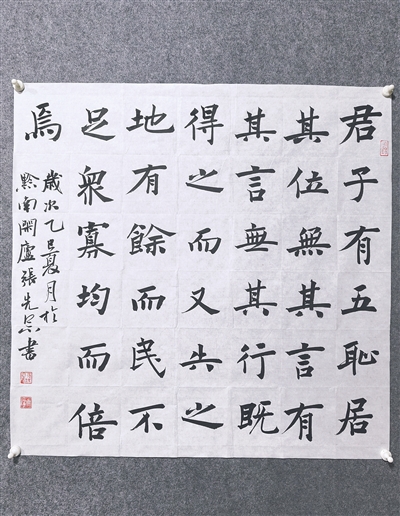 君子有五恥居
其位無其言有
其言無其行既
得之而又失之
地有餘而民不
足衆寡均而倍
焉
歲次乙巳夏月於
黔南廬張先忠書